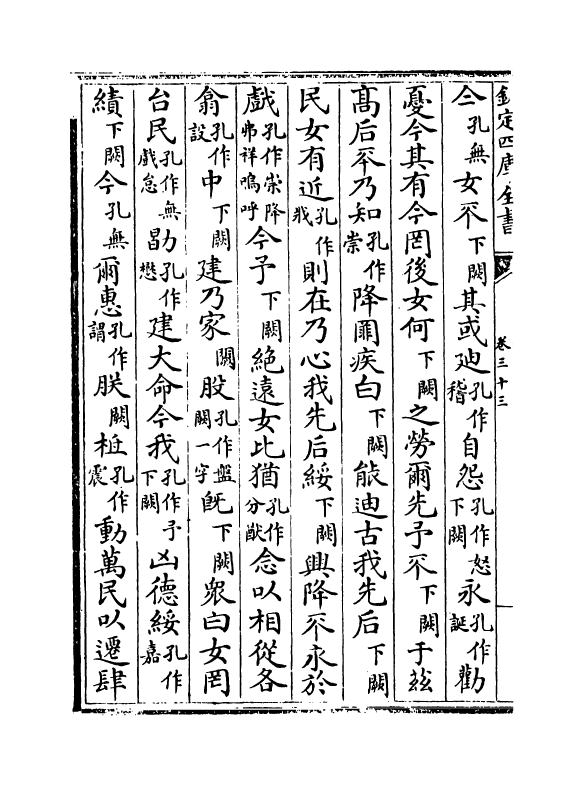 欽定四庫全書
卷三十三
仝孔無女不下闕其或迪孔作稽自怨孔作怒下闕永孔作誕勸
憂今其有今罔後女何下闕之勞爾先予不下闕于兹
高后丕乃知孔作崇降罪疾曰下闕能迪古我先后下闕
民女有近孔作戕則在乃心我先后綏下闕興降不永於
戲孔作崇降弗祥嗚呼今予下闕絶遠女比猶孔作分猷念以相從各
翕孔作設中下闕建乃家闕股孔作盤闕一字旣下闕衆曰女罔
台民孔作無戲怠勖孔作懋建大命今我孔作予下闕凶德綏孔作嘉
績下闕今孔無爾惠孔作謂朕闕桩孔作震動萬民以遷肆